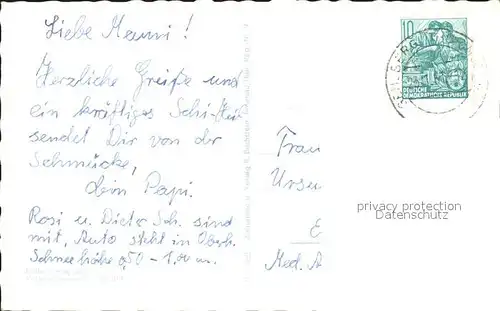 Liebe Mausi!
Herzliche Grüße und
ein kräftiges Schi-Heil
sendet Dir von der
Schmücke,
Dein Papi.
Rosi u. Dieter Sch. sind
mit, Auto steht in Oberh.
Schneehöhe 0,50 - 1,00 m.
10
DEUTSCHE
DEMOKRATISCHE REPUBLIK
Frau
Ursu
E
Med. A
privacy protection
Datenschutz